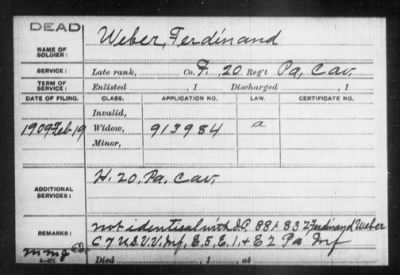 DEAD
NAME OF SOLDIER: Weber, Ferdinand
SERVICE: Late rank, Co. F. 20 Reg't Pa, Cav.
TERM OF SERVICE: Enlisted , 1 Discharged , 1
DATE OF FILING. CLASS. APPLICATION NO. LAW. CERTIFICATE NO.
Invalid,
1909 Feb 19 Widow, 913984 a
Minor,
ADDITIONAL SERVICES: H. 20, Pa, Cav.
REMARKS: not identical with 881832 Ferdinand Weber
C 7 U.S.V.V. Inf, E, 5, E, 1, & E 2 Pa Inf
Died , 1 , at